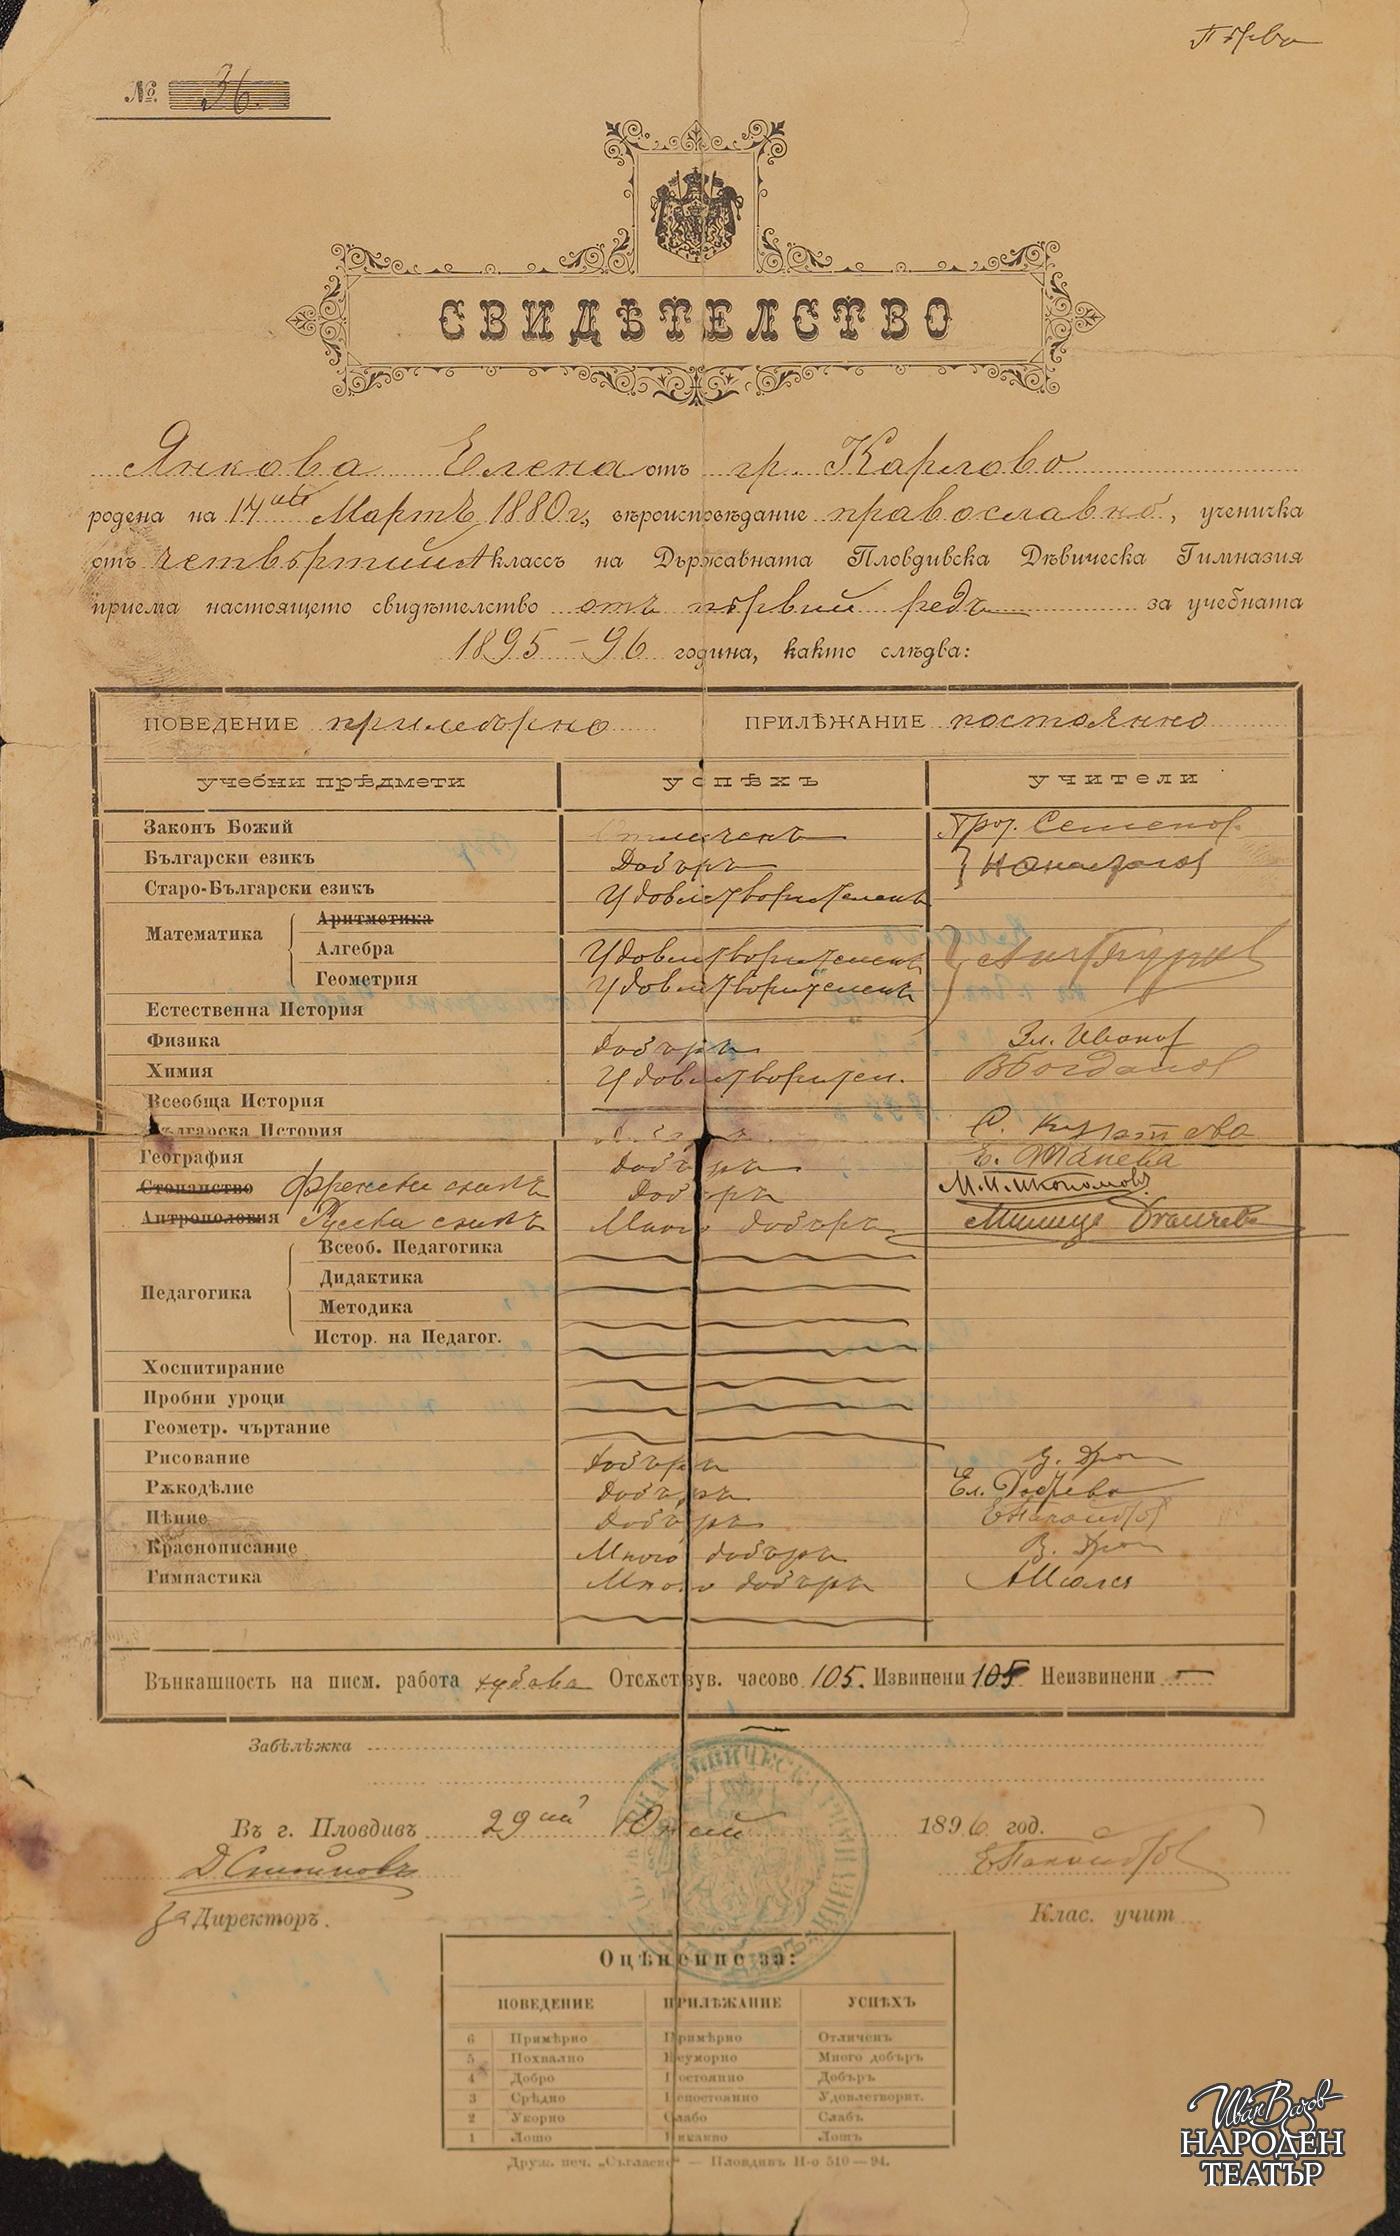 Първа
№ 36.
СВИДѢТЕЛСТВО
Янкова Елена отъ гр. Карлово
родена на 14ий Мартъ 1880 г., вѣроисповѣдание православно, ученичка
отъ четвъртий класъ на Държавната Пловдивска Дѣвическа Гимназия
приема настоящето свидѣтелство отъ първий редъ за учебната
1895–96 година, както слѣдва:
ПОВЕДЕНИЕ примѣрно ПРИЛѢЖАНИЕ постоянно
учебни прѣдмети успѣхъ учители
Законъ Божий Отличенъ Прот. Семенов
Български езикъ Добъръ
Старо-Български езикъ Удовлетворителенъ
Математика
Аритметика
Алгебра Удовлетворителенъ
Геометрия Удовлетворителенъ
Естественна История
Физика Добъръ Зл. Иванов
Химия Удовлетворител. В Богданов
Всеобща История
Българска История
География Добъръ
Стопанство Френски езикъ Добъръ М. И. Икономовъ
Антропология Русски езикъ Много добъръ
Педагогика
Всеоб. Педагогика
Дидактика
Методика
Истор. на Педагог.
Хоспитирание
Пробни уроци
Геометр. чъртание
Рисование Добъръ
Рѫкодѣлие Добъръ Ел. Добрева
Пѣние Добъръ
Краснописание Много добъръ
Гимнастика Много добъръ
Вънкашность на писм. работа хубава Отсѫствув. часове 105. Извинени 105 Неизвинени —
Забѣлѣжка
Въ г. Пловдивъ 29ий Юний 1896 год.
за Директоръ. Клас. учит
Оцѣнение за:
ПОВЕДЕНИЕ ПРИЛѢЖАНИЕ УСПѢХЪ
6 Примѣрно Примѣрно Отличенъ
5 Похвално Неуморно Много добъръ
4 Добро Постоянно Добъръ
3 Срѣдно Непостоянно Удовлетворит.
2 Укорно Слабо Слабъ
1 Лошо Никакво Лошъ
Друж. печ. „Съгласие“ — Пловдивъ Н-о 510—94.
Иван Вазов
НАРОДЕН
ТЕАТЪР